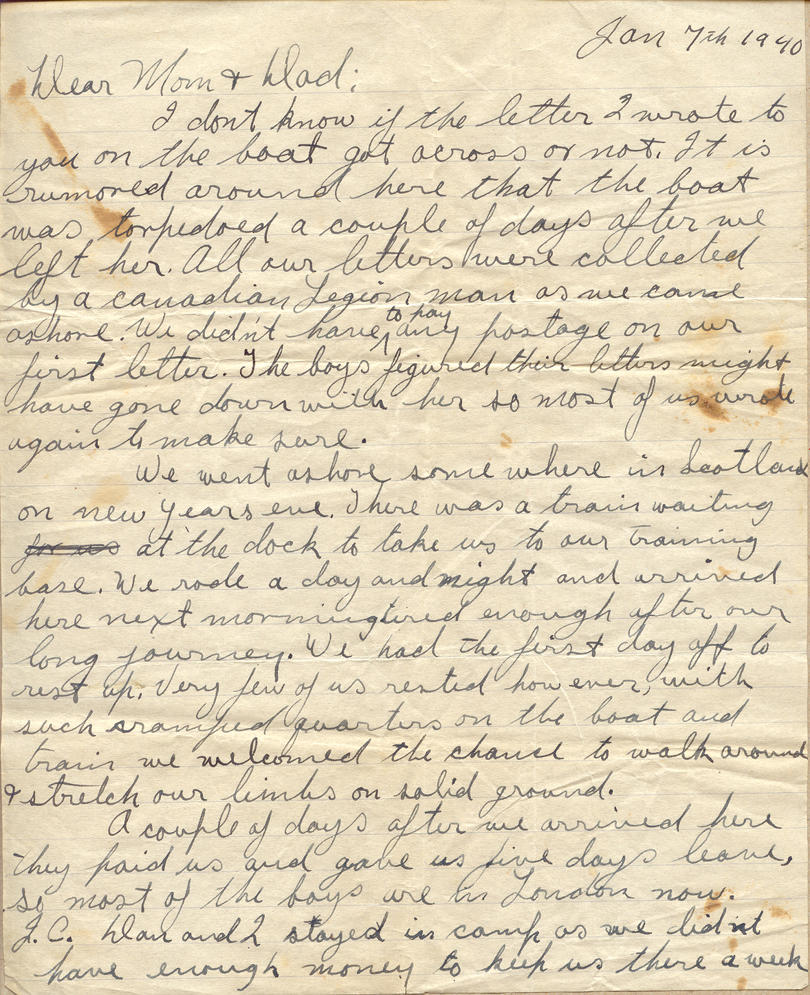 Jan 7th 1940
Dear Mom & Dad;
I dont know if the letter I wrote to
you on the boat got across or not. It is
rumored around here that the boat
was torpedoed a couple of days after we
left her. All our letters were collected
by a canadian Legion man as we came
ashore. We didn't have to pay any postage on our
first letter. The boys figured their letters might
have gone down with her so most of us wrote
again to make sure.
We went ashore some where in Scotland
on new years eve. There was a train waiting
for us at the dock to take us to our training
base. We rode a day and night and arrived
here next morning tired enough after our
long journey. We had the first day off to
rest up. Very few of us rested how ever, with
such cramped quarters on the boat and
train we welcomed the chance to walk around
& stretch our limbs on solid ground.
A couple of days after we arrived here
they paid us and gave us five days leave,
so most of the boys are in London now.
J.C. Dan and I stayed in camp as we didn't
have enough money to keep us there a week